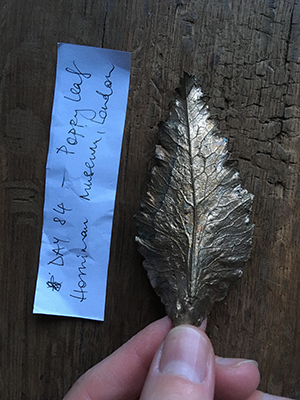 # DAY 84 — Poppy Leaf
Horniman Museum, London